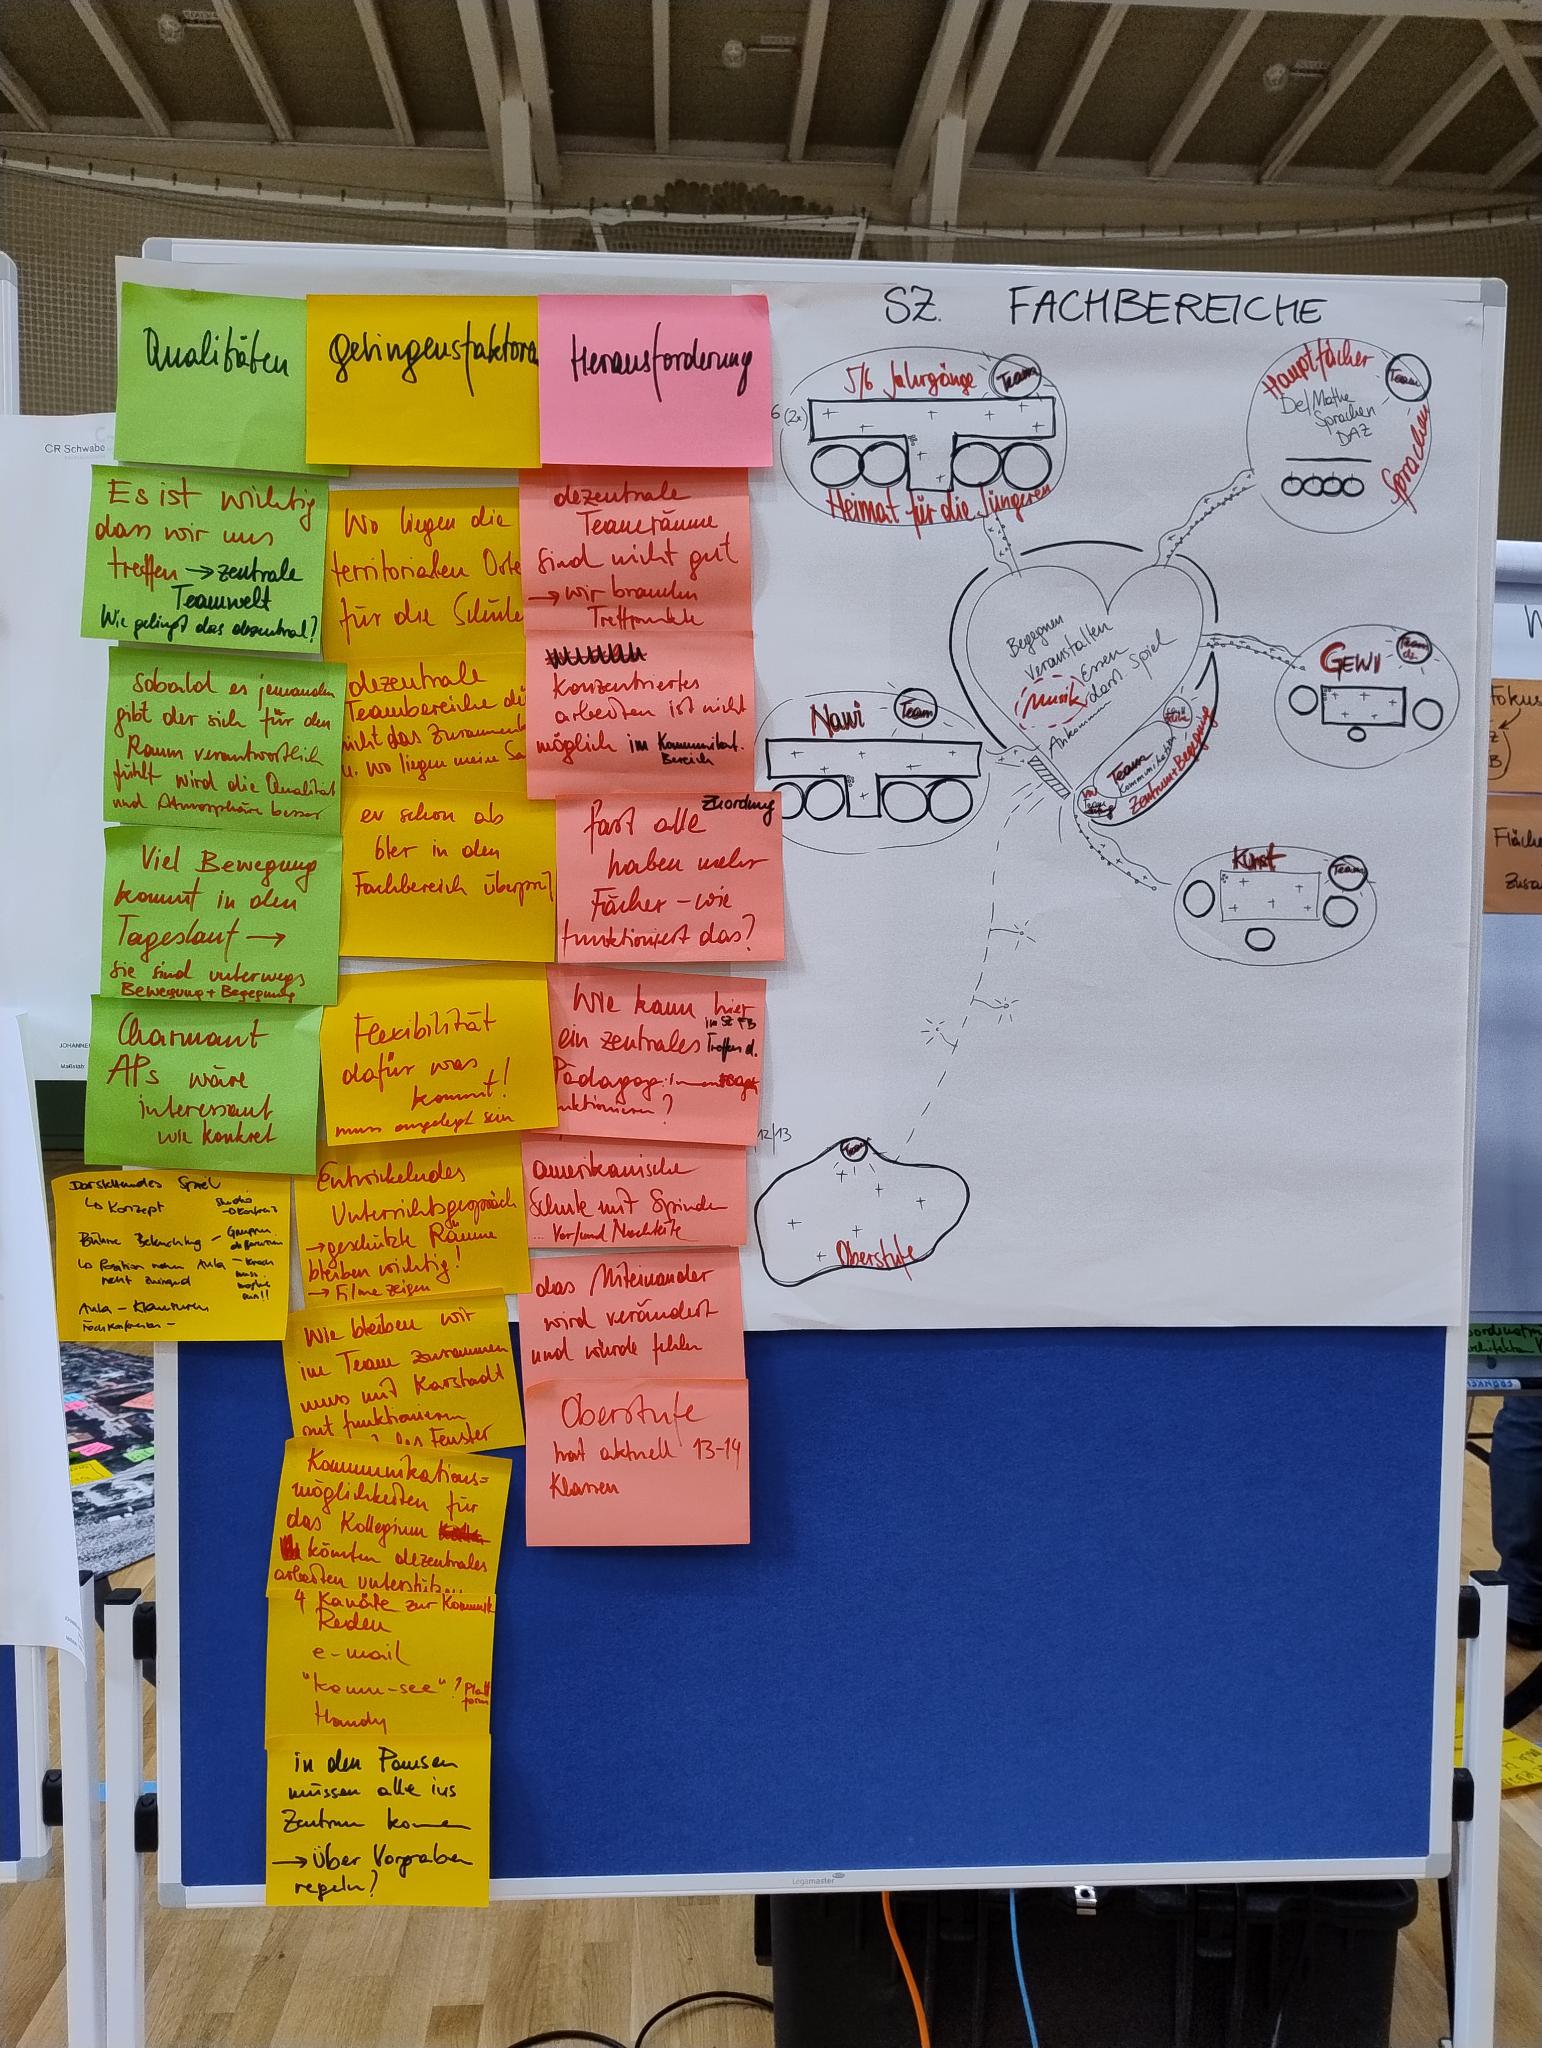 SZ. FACHBEREICHE
Qualitäten
Es ist wichtig
dass wir uns
treffen → zentrale
Teamwelt
Wie gelingt das dezentral?
Sobald es jemanden
gibt der sich für den
Raum verantwortlich
fühlt wird die Qualität
und Atmosphäre besser
Viel Bewegung
kommt in den
Tageslauf →
sie sind unterwegs
Bewegung + Begegnung
Charmant
APs wäre
interessant
wie konkret
Darstellendes Spiel
↳ Konzept
Bühne Beleuchtung - Gruppen
↳ Position neben Aula
nicht zwingend
Aula - Klausuren
Fachkonferenzen -
Gelingensfaktoren
Wo liegen die
territorialen Orte
für die Schüle
dezentrale
Teambereiche dü
nicht das Zusammenk
u. wo liegen meine Sa
er schon ab
6ter in den
Fachbereich überprü
Flexibilität
dafür was
kommt!
muss angelegt sein
Entwickelndes
Unterrichtsgespräch
→ geschützte Räume
bleiben wichtig!
→ Filme zeigen
Wie bleiben wir
im Team zusammen
muss mit Karstadt
gut funktionieren
das Fenster
Kommunikations=
möglichkeiten für
das Kollegium
könnten dezentrales
arbeiten unterstütz
4 Kanäle zur Kommunik
Reden
e-mail
"komm-see"? Platt
form
Handy
in den Pausen
müssen alle ins
Zentrum kommen
→ über Vorgaben
regeln?
Herausforderung
dezentrale
Teamräume
sind nicht gut
→ wir brauchen
Treffpunkte
Konzentriertes
arbeiten ist nicht
möglich im Kommunikat.
Bereich
Zuordnung
fast alle
haben mehr
Fächer - wie
funktioniert das?
Wie kann hier
im SZ FB
ein zentrales Treffen d.
Pädagog:innen
funktionieren?
amerikanische
Schule mit Spinden
... Vor/und Nachteile
das Miteinander
wird verändert
und würde fehlen
Oberstufe
hat aktuell 13-14
Klassen
5/6 Jahrgänge
Team
6 (2x)
Heimat für die Jüngeren
Hauptfächer
Team
De/Mathe
Sprachen
DAZ
Sprachen
Begegnen
Veranstalten
Essen
Musik
darst. Spiel
Ankommen
Team
Kommunikation
Zentrum + Begegnung
Team
GEWI
Team
Nawi
Team
Kunst
Team
12/13
Team
Oberstufe
CR Schwabe
JOHANNE
Maßstab
Legamaster
Fokus
Z
B
Fläche
Zusa